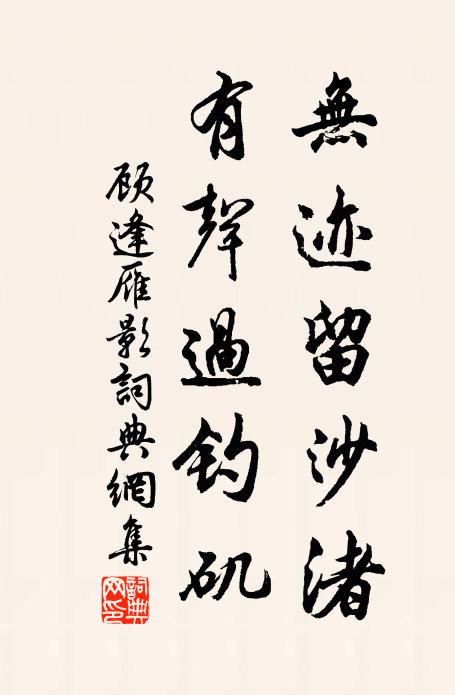 無迹留沙渚
有聲過釣矶
顾逢雁影詞典網集
詞典網印